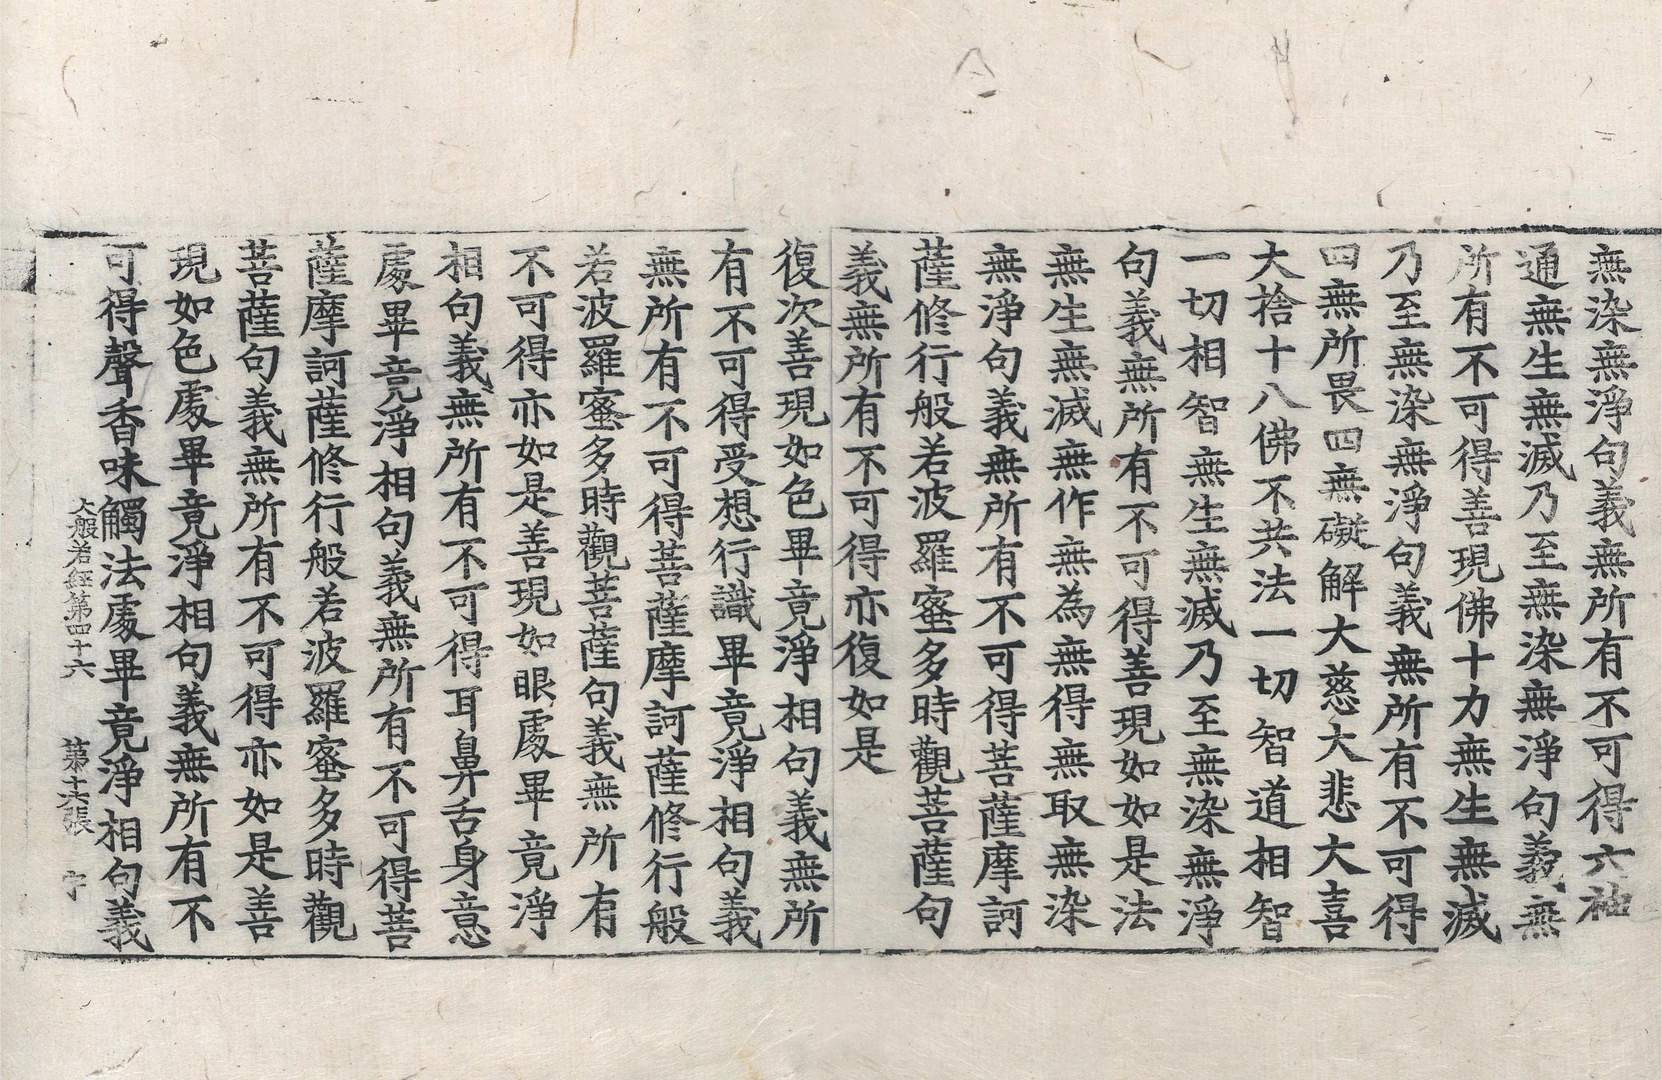 無染無淨句義無所有不可得六神
通無生無滅乃至無染無淨句義無
所有不可得善現佛十力無生無滅
乃至無染無淨句義無所有不可得
四無所畏四無礙解大慈大悲大喜
大捨十八佛不共法一切智道相智
一切相智無生無滅乃至無染無淨
句義無所有不可得善現如如是法
無生無滅無作無為無得無取無染
無淨句義無所有不可得菩薩摩訶
薩修行般若波羅蜜多時觀菩薩句
義無所有不可得亦復如是
復次善現如色畢竟淨相句義無所
有不可得受想行識畢竟淨相句義
無所有不可得菩薩摩訶薩修行般
若波羅蜜多時觀菩薩句義無所有
不可得亦如是善現如眼處畢竟淨
相句義無所有不可得耳鼻舌身意
處畢竟淨相句義無所有不可得菩
薩摩訶薩修行般若波羅蜜多時觀
菩薩句義無所有不可得亦如是善
現如色處畢竟淨相句義無所有不
可得聲香味觸法處畢竟淨相句義
大般若經第四十六 第十六張 宇